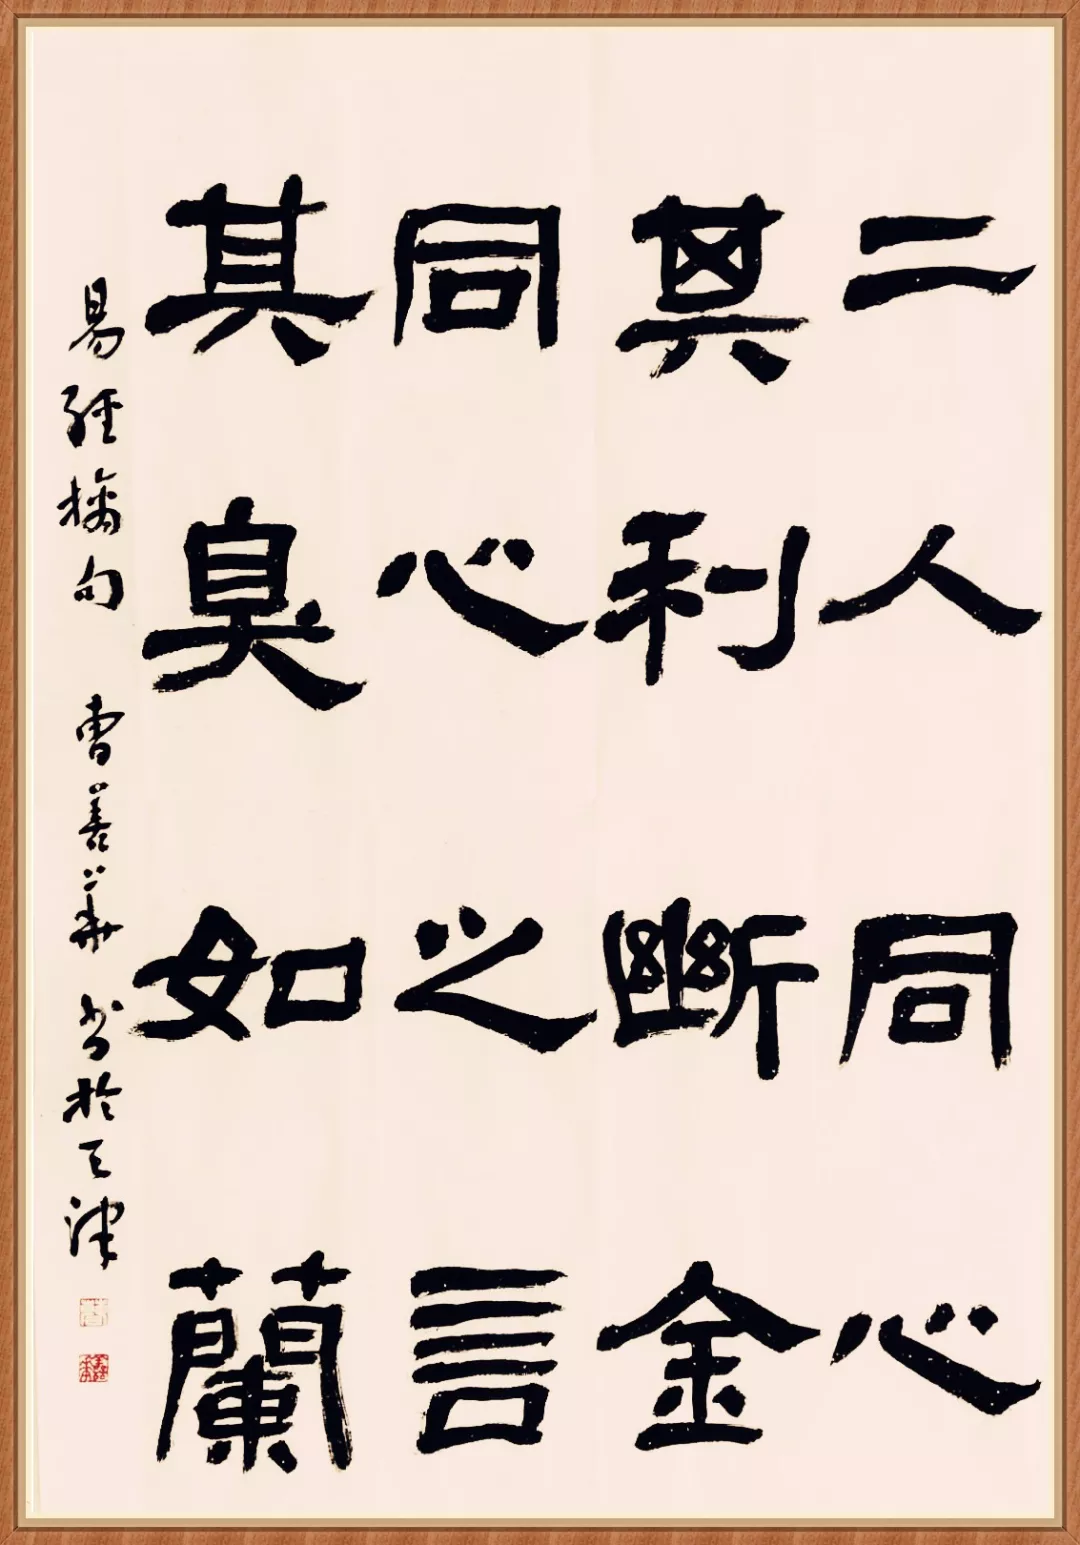 二人同心
其利斷金
同心之言
其臭如蘭
易經摘句 曹善華书於天津